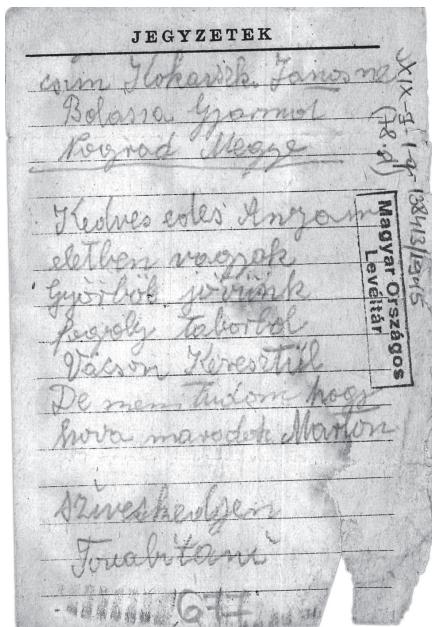 JEGYZETEK
csim Kokavszk Janosne
Bolassa Gyarmat
Nograd Megye
Kedves edes Anyam
eletben vagyok
Győrből jövünk
fogoly taborbol
Vácson Keresztűl
De nem tudom hogy
hova maradok Marton
Sziveskedjen
Tovabitani
677
XIX-J-1-q
(18.d)
138/13/1945
Magyar Országos
Levéltár